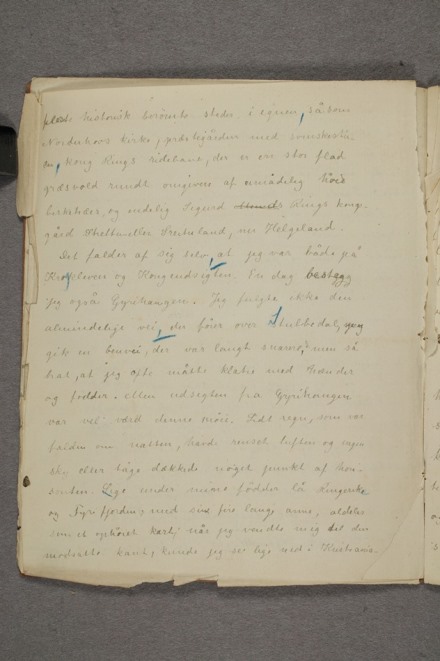 historisk berömte steder i egnen, såsom
Norderhovs kirke, præstegården med svenskestu
en, Kong Rings ridebane, der er en stor flad
græsvold rundt omgiven af umådelig høie
birketræer, og endelig Sigurd Rings kong-
gård
Det falder af sig selv, at jeg var både på
Krokleven og Kongeudsigten. En dag besteg
jeg også Gyrihaugen. Jeg fulgte ikke den
almindelige vei, der fører over Stubbdal, jeg
gik en benvei, der var langt snarere, men så
brat, at jeg ofte måtte klatre med hænder
og fødder. Men udsigten fra Gyrihaugen
var vel værd denne møie. Lidt regn, som var
falden om natten, havde renset luften og ingen
sky eller tåge dækkede noget punkt af hori-
sonten. Lige under mine fødder lå
og Tyrifjorden, med sine fire lange arme, aldeles
som et kart; når jeg vendte mig til den
modsatte kant, kunde jeg se lige ned i Kristiania